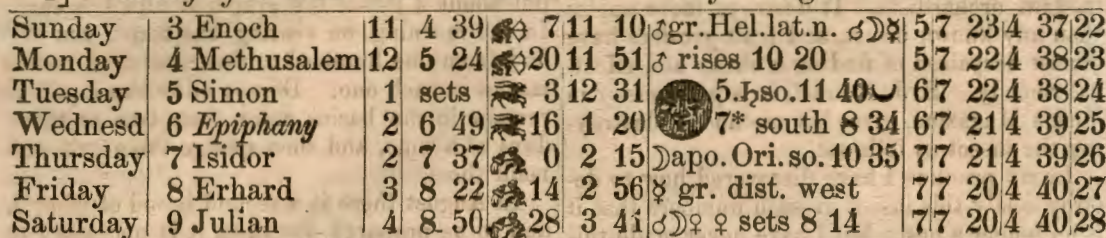 Sunday 3 Enoch 11 4 39 7 11 10 ♂gr.Hel.lat.n. ☌☽☿ 5 7 23 4 37 22
Monday 4 Methusalem 12 5 24 20 11 51 ♂ rises 10 20 5 7 22 4 38 23
Tuesday 5 Simon 1 sets 3 12 31 5. ♄so. 11 40 6 7 22 4 38 24
Wednesd 6 Epiphany 2 6 49 16 1 20 7* south 8 34 6 7 21 4 39 25
Thursday 7 Isidor 2 7 37 0 2 15 ☽apo. Ori. so. 10 35 7 7 21 4 39 26
Friday 8 Erhard 3 8 22 14 2 56 ☿ gr. dist. west 7 7 20 4 40 27
Saturday 9 Julian 4 8 50 28 3 41 ☌☽♀ ♀ sets 8 14 7 7 20 4 40 28